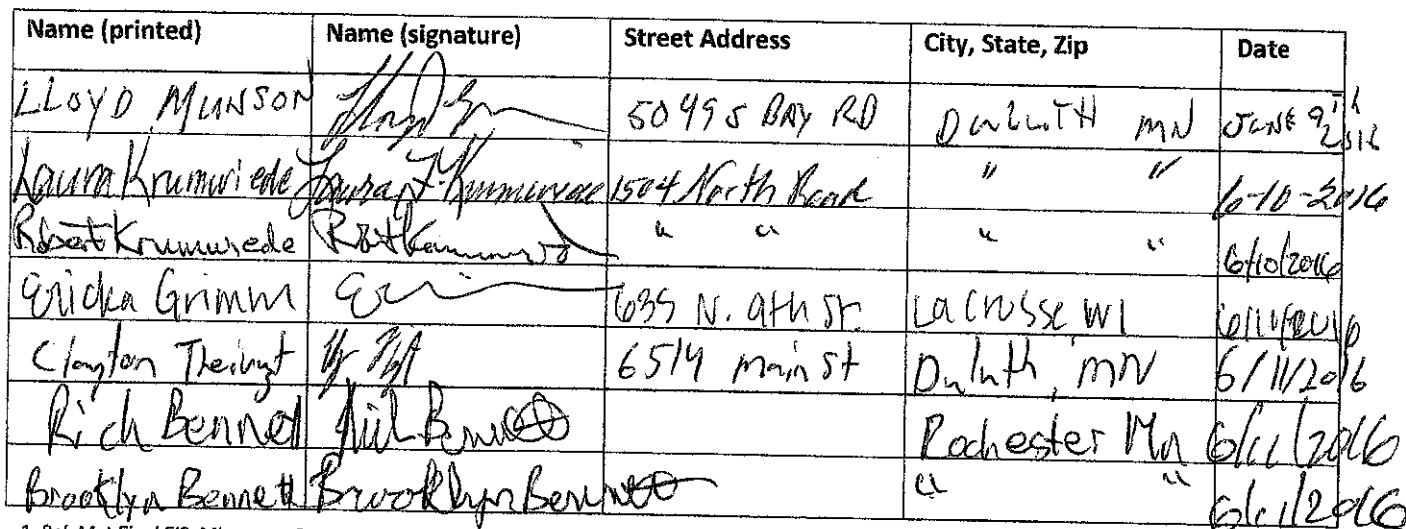 Name (printed) Name (signature) Street Address City, State, Zip Date
LLOYD MUNSON 5049 S BAY RD DULUTH MN JUNE 9th 2016
Laura Krumwiede Laura Krumwiede 1504 North Road " " 6-10-2016
Robert Krumwiede " " " " 6/10/2016
Ericka Grimm 635 N. 9th St. La Crosse WI 2016
Clayton 6514 Main St Duluth, MN 6/11/2016
Rich Bennett Rich Bennett Rochester Mn 6/11/2016
Brooklyn Bennett Brooklyn Bennett " " 6/11/2016